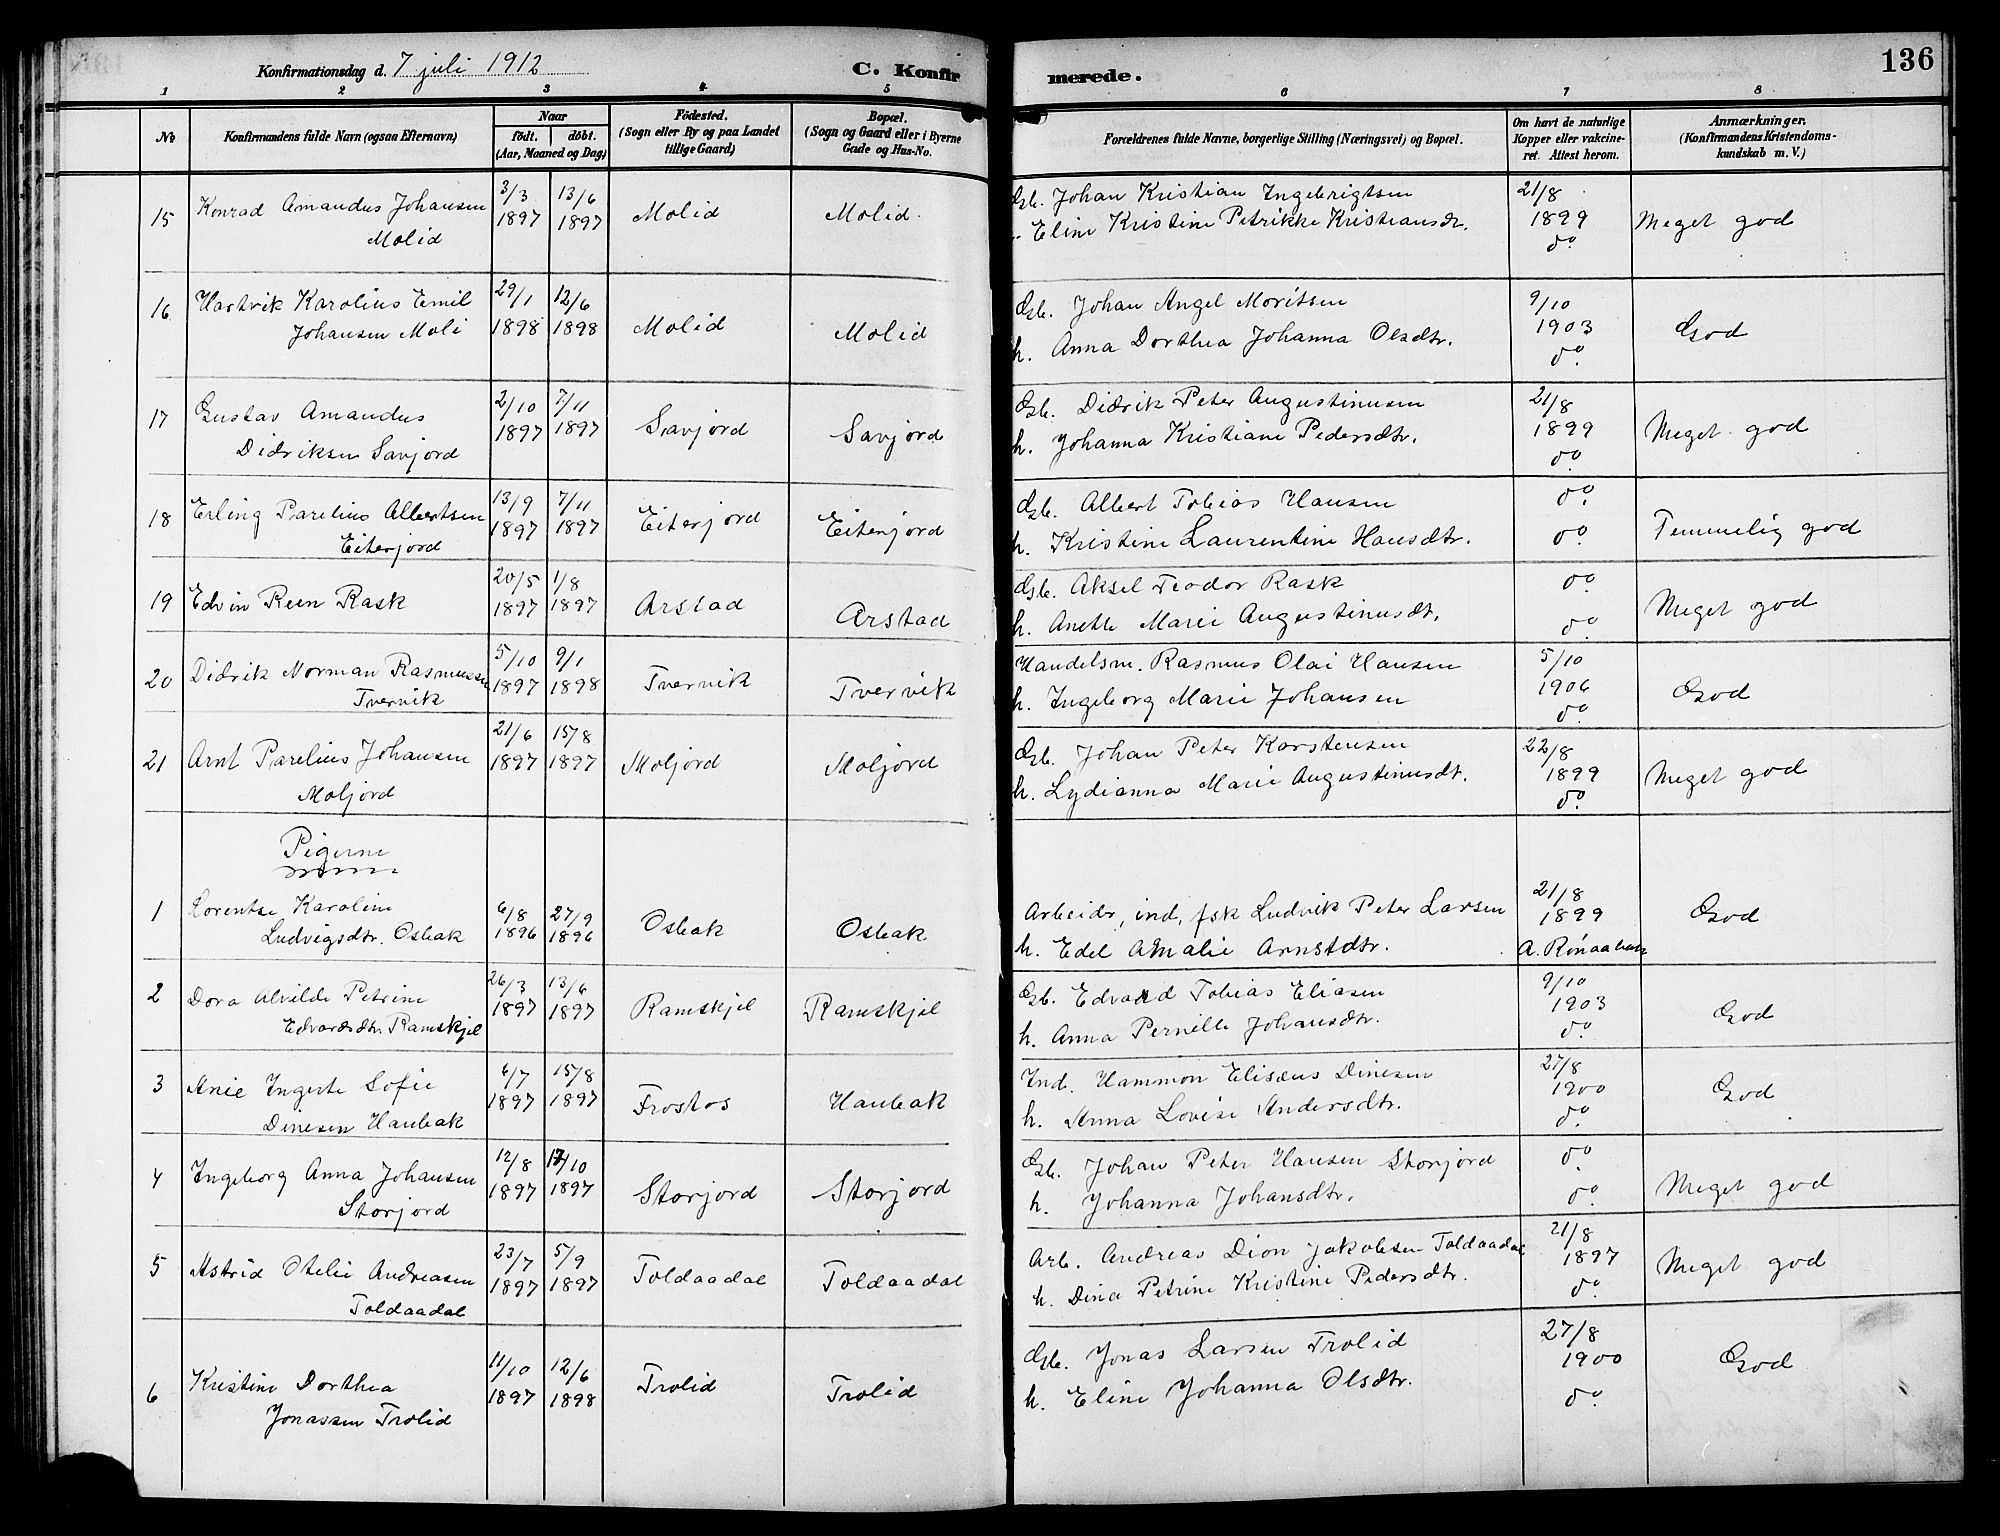 Konfirmationsdag d. 7 juli 1912
C. Konfir
merede.
136
1 2 3 4 5 6 7 8
№
Konfirmandens fulde Navn (ogsaa Efternavn)
Naar
født. døbt.
(Aar, Maaned og Dag)
Fødested.
(Sogn eller By og paa Landet
tillige Gaard)
Bopæl.
(Sogn og Gaard eller i Byerne
Gade og Hus-No.
Forældrenes fulde Navne, borgerlige Stilling (Næringsvei) og Bopæl.
Om havt de naturlige
Kopper eller vakcine-
ret. Attest herom.
Anmærkninger.
(Konfirmandens Kristendoms-
kundskab m. V.)
15 Konrad Amandus Johansen 3/3 13/6 Gb. Johan Kristian Ingebrigtsen 21/8
Molid 1897 1897 Molid Molid. Eline Kristine Petrikke Kristiansdr. 1899 Meget god
do
16 Hartvik Karolius Emil 29/1 12/6 Gb. Johan Angel Moritsen 9/10
Johansen Moli 1898 1898 Molid Molid h. Anna Dorthea Johanna Olsdtr. 1903 God
do
17 Gustav Amandus 2/10 7/11 Gb. Didrik Peter Augustinusen 21/8
Didriksen Savjord 1897 1897 Savjord Savjord h. Johanna Kristiane Pedersdtr. 1899 Meget god
do
18 Erling Parelius Albertsen 13/9 7/11 Gb. Albert Tobias Hansen do
Eiterjord 1897 1897 Eiterjord Eiterjord h. Kristine Laurentine Hansdtr. do Temmelig god
19 Edvin Reen Rask 20/5 1/8 Gb. Aksel Teodor Rask do
1897 1897 Arstad Arstad h. Anette Marei Augustinusdt. do Meget god
20 Didrik Norman Rasmussen 5/10 9/1 Handelsm. Rasmus Olai Hansen 5/10
Tvervik 1897 1898 Tvervik Tvervik h. Ingeborg Marie Johansen 1906 God
do
21 Arnt Parelius Johansen 21/6 15/8 Gb. Johan Peter Karstensen 22/8
Moljord 1897 1897 Moljord Moljord h. Lydianna Marie Augustinusdt. 1899 Meget god
do
Pigerne
1 Lorentse Karoline 6/8 27/9 Arbeidr, ind, fsk Ludvik Peter Larsen 21/8
Ludvigsdtr. Osbak 1896 1896 Osbak Osbak h. Edel Amalie Arnstdtr. 1899 God
2 Dora Alvilde Petrine 26/3 13/6 Gb. Edvard Tobias Eliasen 9/10
Edvardsdtr Ramskjel 1897 1897 Ramskjel Ramskjel h. Anna Pernille Johansdtr. 1903 God
do
3 Anie Ingerte Sofie 6/7 15/8 Ind. Hammon Elisæus Dinesen 27/8
Dinesen Haubak 1897 1897 Frostos Haubak h. Anna Lovise Andersdtr. 1900 God
do
4 Ingeborg Anna Johansen 12/8 /10 Gb. Johan Peter Hansen Storjord do
Storjord 1897 1897 Storjord Storjord h. Johanna Johansdtr. do Meget god
5 Astrid Otelie Andreasen 23/7 5/9 Arb. Andreas Dion Jakobsen Toldaadal 21/8
Toldaadal 1897 1897 Toldaadal Toldaadal h. Dina Petrine Kristine Pedersdtr. 1897 Meget god
do
6 Kristine Dorthea 11/10 12/6 Gb. Jonas Larsen Trolid 27/8
Jonassen Trolid 1897 1898 Trolid Trolid h. Eline Johanna Olsdtr. 1900 God
do